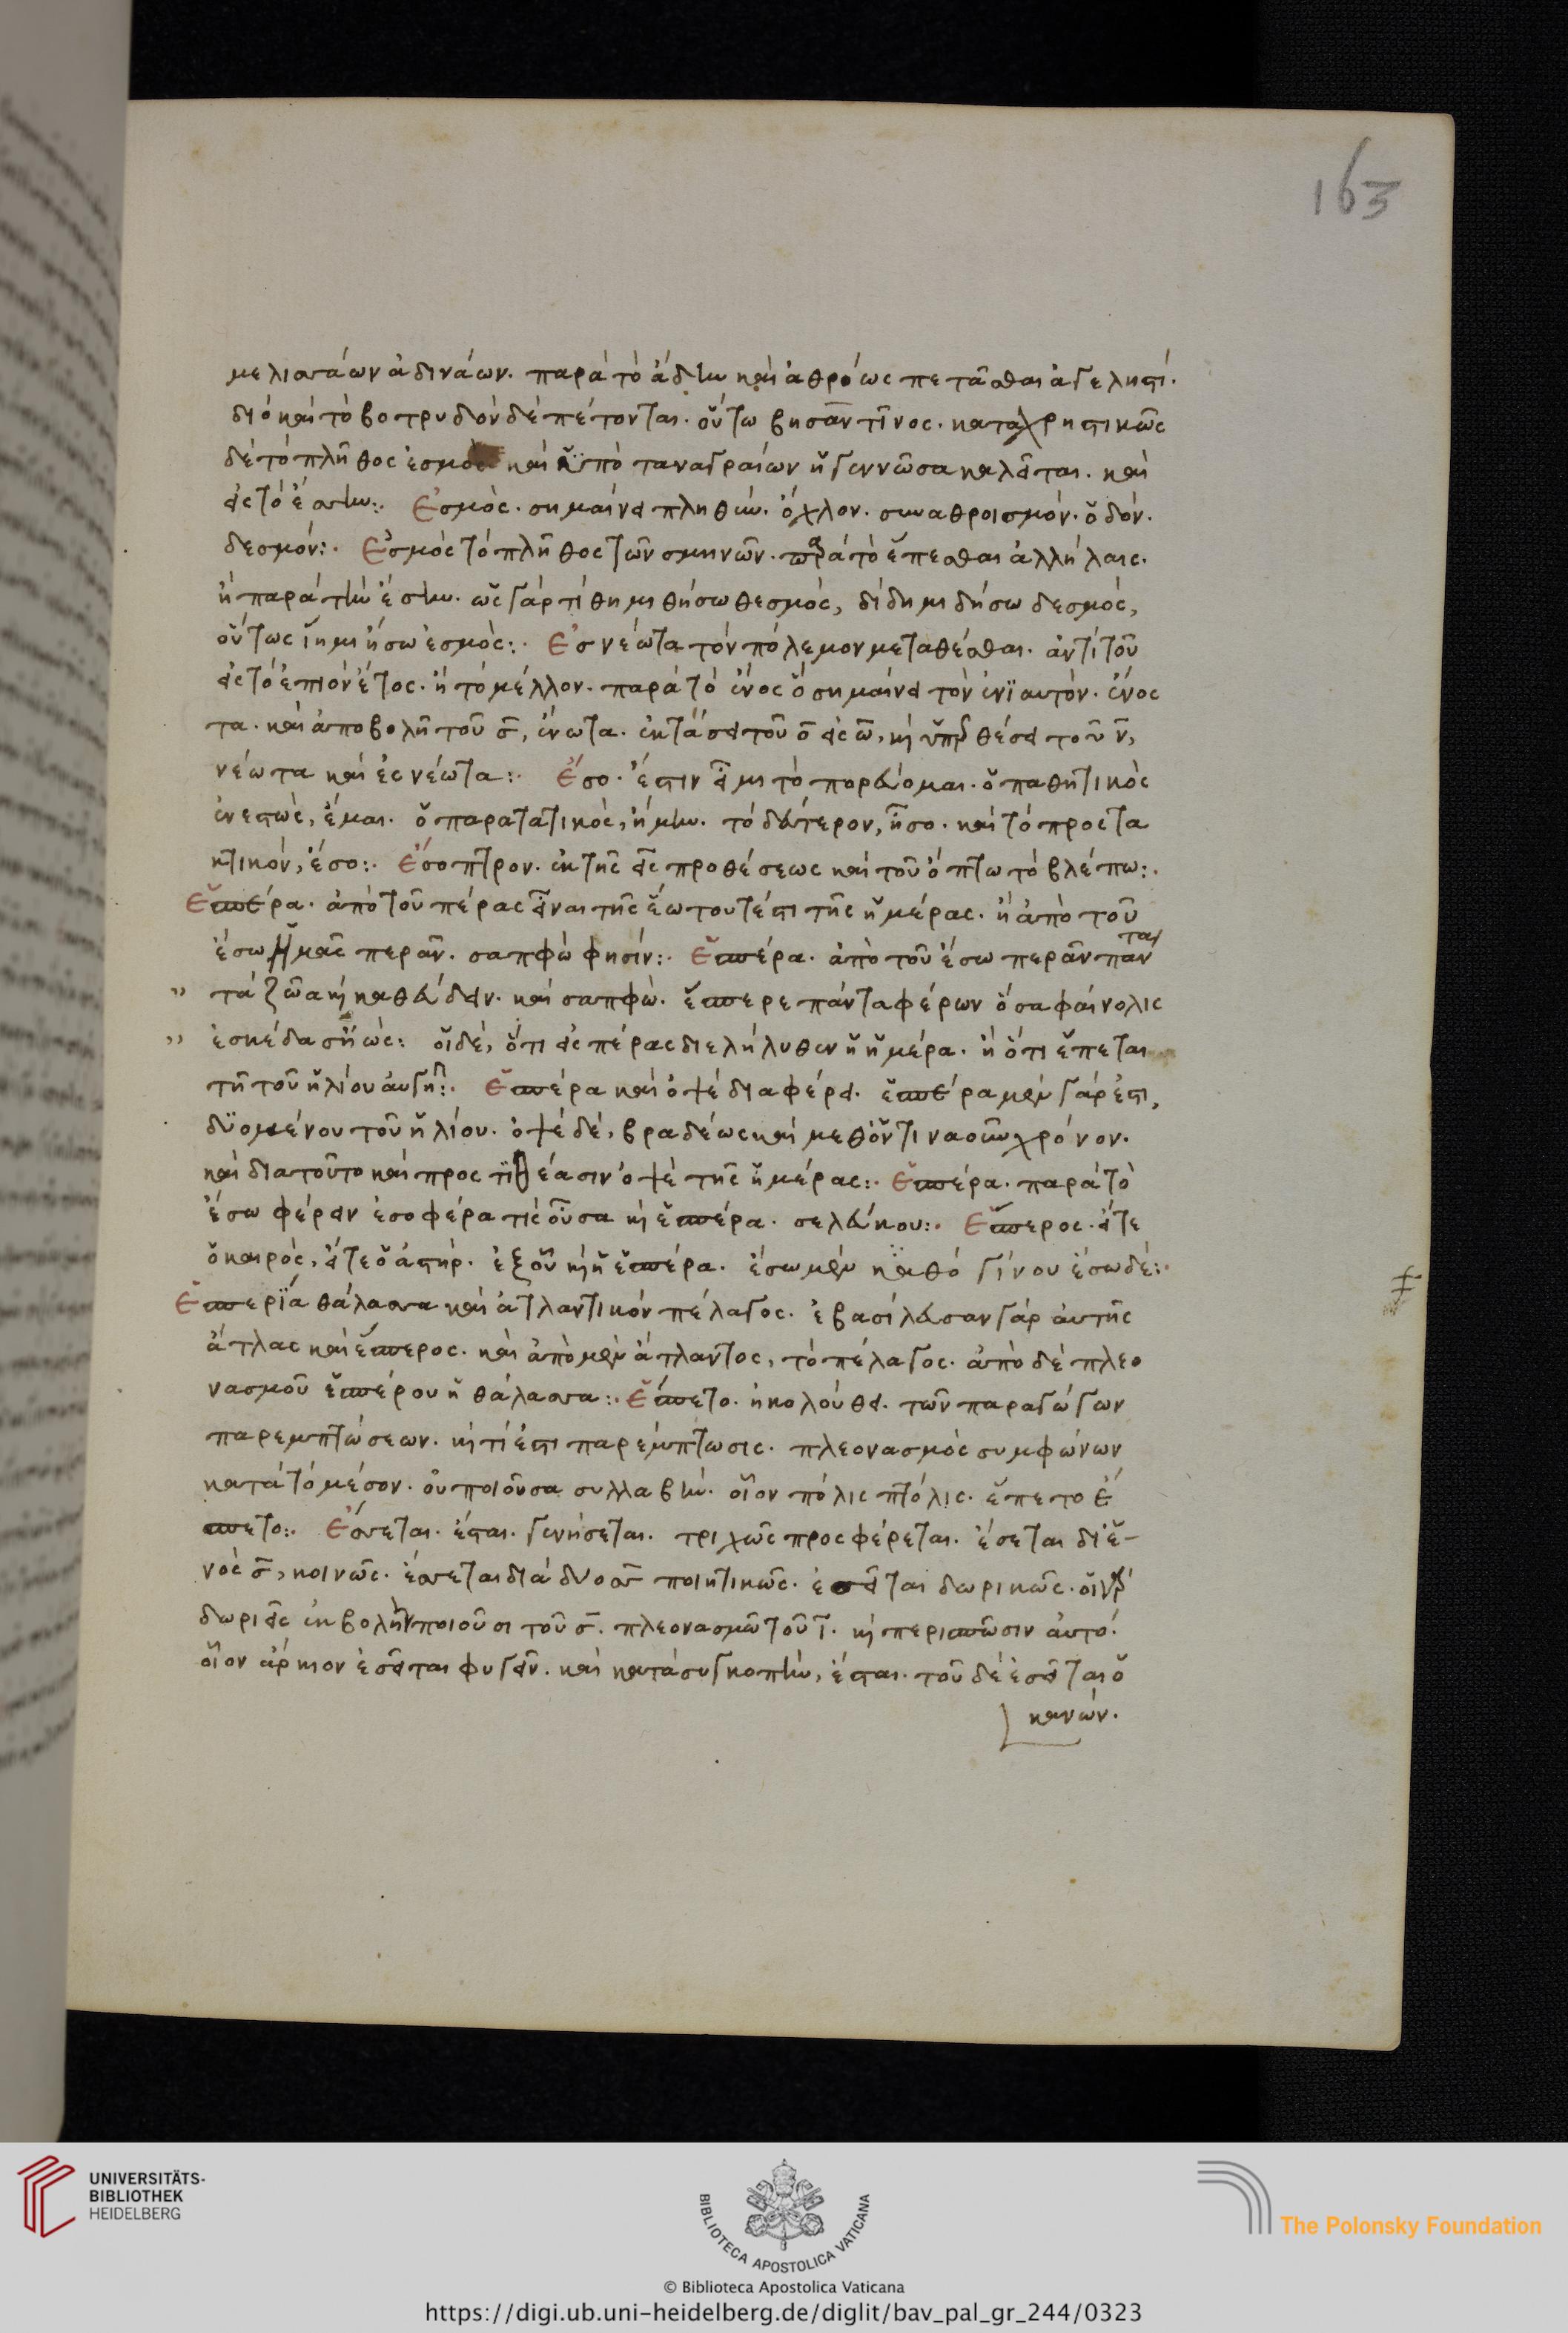 163
μελισσάων ἀδινάων. παρὰ τὸ ἄδην καὶ ἀθρόως πετᾶσθαι ἀγεληστί.
διὸ καὶ τὸ βοτρυδὸν δὲ πέτονται. οὕτω βησαντῖνος. καταχρηστικῶς
δὲ τὸ πλῆθος ἑσμὸς καὶ ὑπὸ ταναγραίων ἡ γεννῶσα καλεῖται. καὶ
εἰς τὸ ἕσσην:. Ἑσμὸς. σημαίνει πληθὺν. ὄχλον. συναθροισμόν. ὁδόν.
δεσμόν:. Ἑσμὸς τὸ πλῆθος τῶν σμηνῶν. παρὰ τὸ ἕπεσθαι ἀλλήλαις.
ἢ παρὰ τὴν ἕσιν. ὡς γὰρ τίθημι θήσω θεσμὸς, δίδημι δήσω δεσμὸς,
οὕτως ἵημι ἥσω ἑσμὸς:. Ἐσνέωτα τὸν πόλεμον μεταθέσθαι. ἀντὶ τοῦ
εἰς τὸ ἐπιὸν ἔτος. ἢ τὸ μέλλον. παρὰ τὸ ἔνος ὃ σημαίνει τὸν ἐνϊαυτὸν. ἔνος
τα. καὶ ἀποβολῆ τοῦ σ, ένωτα. ἐκτάσει τοῦ ο εἰς ω, κὴ ὑπερθέσει τοῦ ν,
νέωτα καὶ ἐς νέωτα:. Ἕσο. ἔστιν εἶμι τὸ πορεύομαι. ὁ παθητικὸς
ἐνεστὼς, ἕμαι. ὁ παρατατικὸς, ἥμην. τὸ δεύτερον, ἧσο. καὶ τὸ προστα
κτικόν, ἕσο:. Ἔσοπτρον. ἐκ τῆς εἰς προθέσεως καὶ τοῦ ὄπτω τὸ βλέπω:.
Ἑσπέρα. ἀπὸ τοῦ πέρας εἶναι τῆς ἕω τουτέστι τῆς ἡμέρας. ἢ ἀπὸ τοῦ
ἔσω ἡμᾶς περᾶν. σαπφὼ φησίν:. Ἑσπέρα. ἀπὸ τοῦ ἔσω περᾶν πάντα
τὰ ζῶα κὴ καθεύδειν. καὶ σαπφὼ. ἕσπερε πάντα φέρων ὅσα φαίνολις
ἐσκέδασ' ἠὼς: οἱ δὲ, ὅτι εἰς πέρας διελήλυθεν ἡ ἡμέρα. ἢ ὅτι ἕπεται
τῆ τοῦ ἡλίου αὐγῆ:. Ἑσπέρα καὶ ὀψὲ διαφέρει. ἑσπέρα μὲν γάρ ἐστι,
δϋομένου τοῦ ἡλίου. ὀψὲ δὲ, βραδέως καὶ μεθ' ὅντινα οὖν χρόνον.
καὶ διατοῦτο καὶ προστϊθέασιν ὀψὲ τῆς ἡμέρας:. Ἑσπέρα. παρὰ τὸ
ἔσω φέρειν ἐσοφέρα τὶς οὖσα κὴ ἑσπέρα. σελεύκου:. Ἕσπερος. εἴτε
ὁ καιρὸς, εἴτε ὁ ἀστὴρ. ἐξ οὗ κὴ ἡ ἑσπέρα. ἔσω μὲν καθό γίνου ἔσω δὲ:.
Ἑσπερϊα θάλασσα καὶ ἀτλαντικὸν πέλαγος. ἐβασίλευσαν γὰρ αὐτῆς
ἄτλας καὶ ἕσπερος. καὶ ἀπὸ μὲν ἄτλαντος, τὸ πέλαγος. ἀπὸ δὲ πλεο
νασμοῦ ἑσπέρου ἡ θάλασσα:. Ἕσπετο. ἠκολούθει. τῶν παραγώγων
παρεμπτώσεων. κὴ τί ἐστι παρέμπτωσις. πλεονασμὸς συμφώνων
κατὰ τὸ μέσον. οὐ ποιοῦσα συλλαβὴν. οἷον πόλις πτόλις. ἕπετο ἕ
σπετο:. Ἔσσεται. ἔσται. γενήσεται. τριχῶς προσφέρεται. ἔσεται δι' ἑ-
νὸς σ, κοινῶς. ἔσσεται διὰ δύο σσ ποιητικῶς. ἐσεῖται δωρικῶς. οἱ γὰρ
δωριεῖς ἐκβολὴν ποιοῦσι τοῦ σ. πλεονασμῶ τοῦ ι. κὴ περισπῶσιν αὐτό.
οἷον ἄρκιον ἐσεῖται φυγεῖν. καὶ κατὰ συγκοπὴν, ἔσται. τοῦ δὲ ἐσεῖται ὁ
κανών.
UNIVERSITÄTS-
BIBLIOTHEK
HEIDELBERG
BIBLIOTECA APOSTOLICA VATICANA
The Polonsky Foundation
© Biblioteca Apostolica Vaticana
https://digi.ub.uni-heidelberg.de/diglit/bav_pal_gr_244/0323